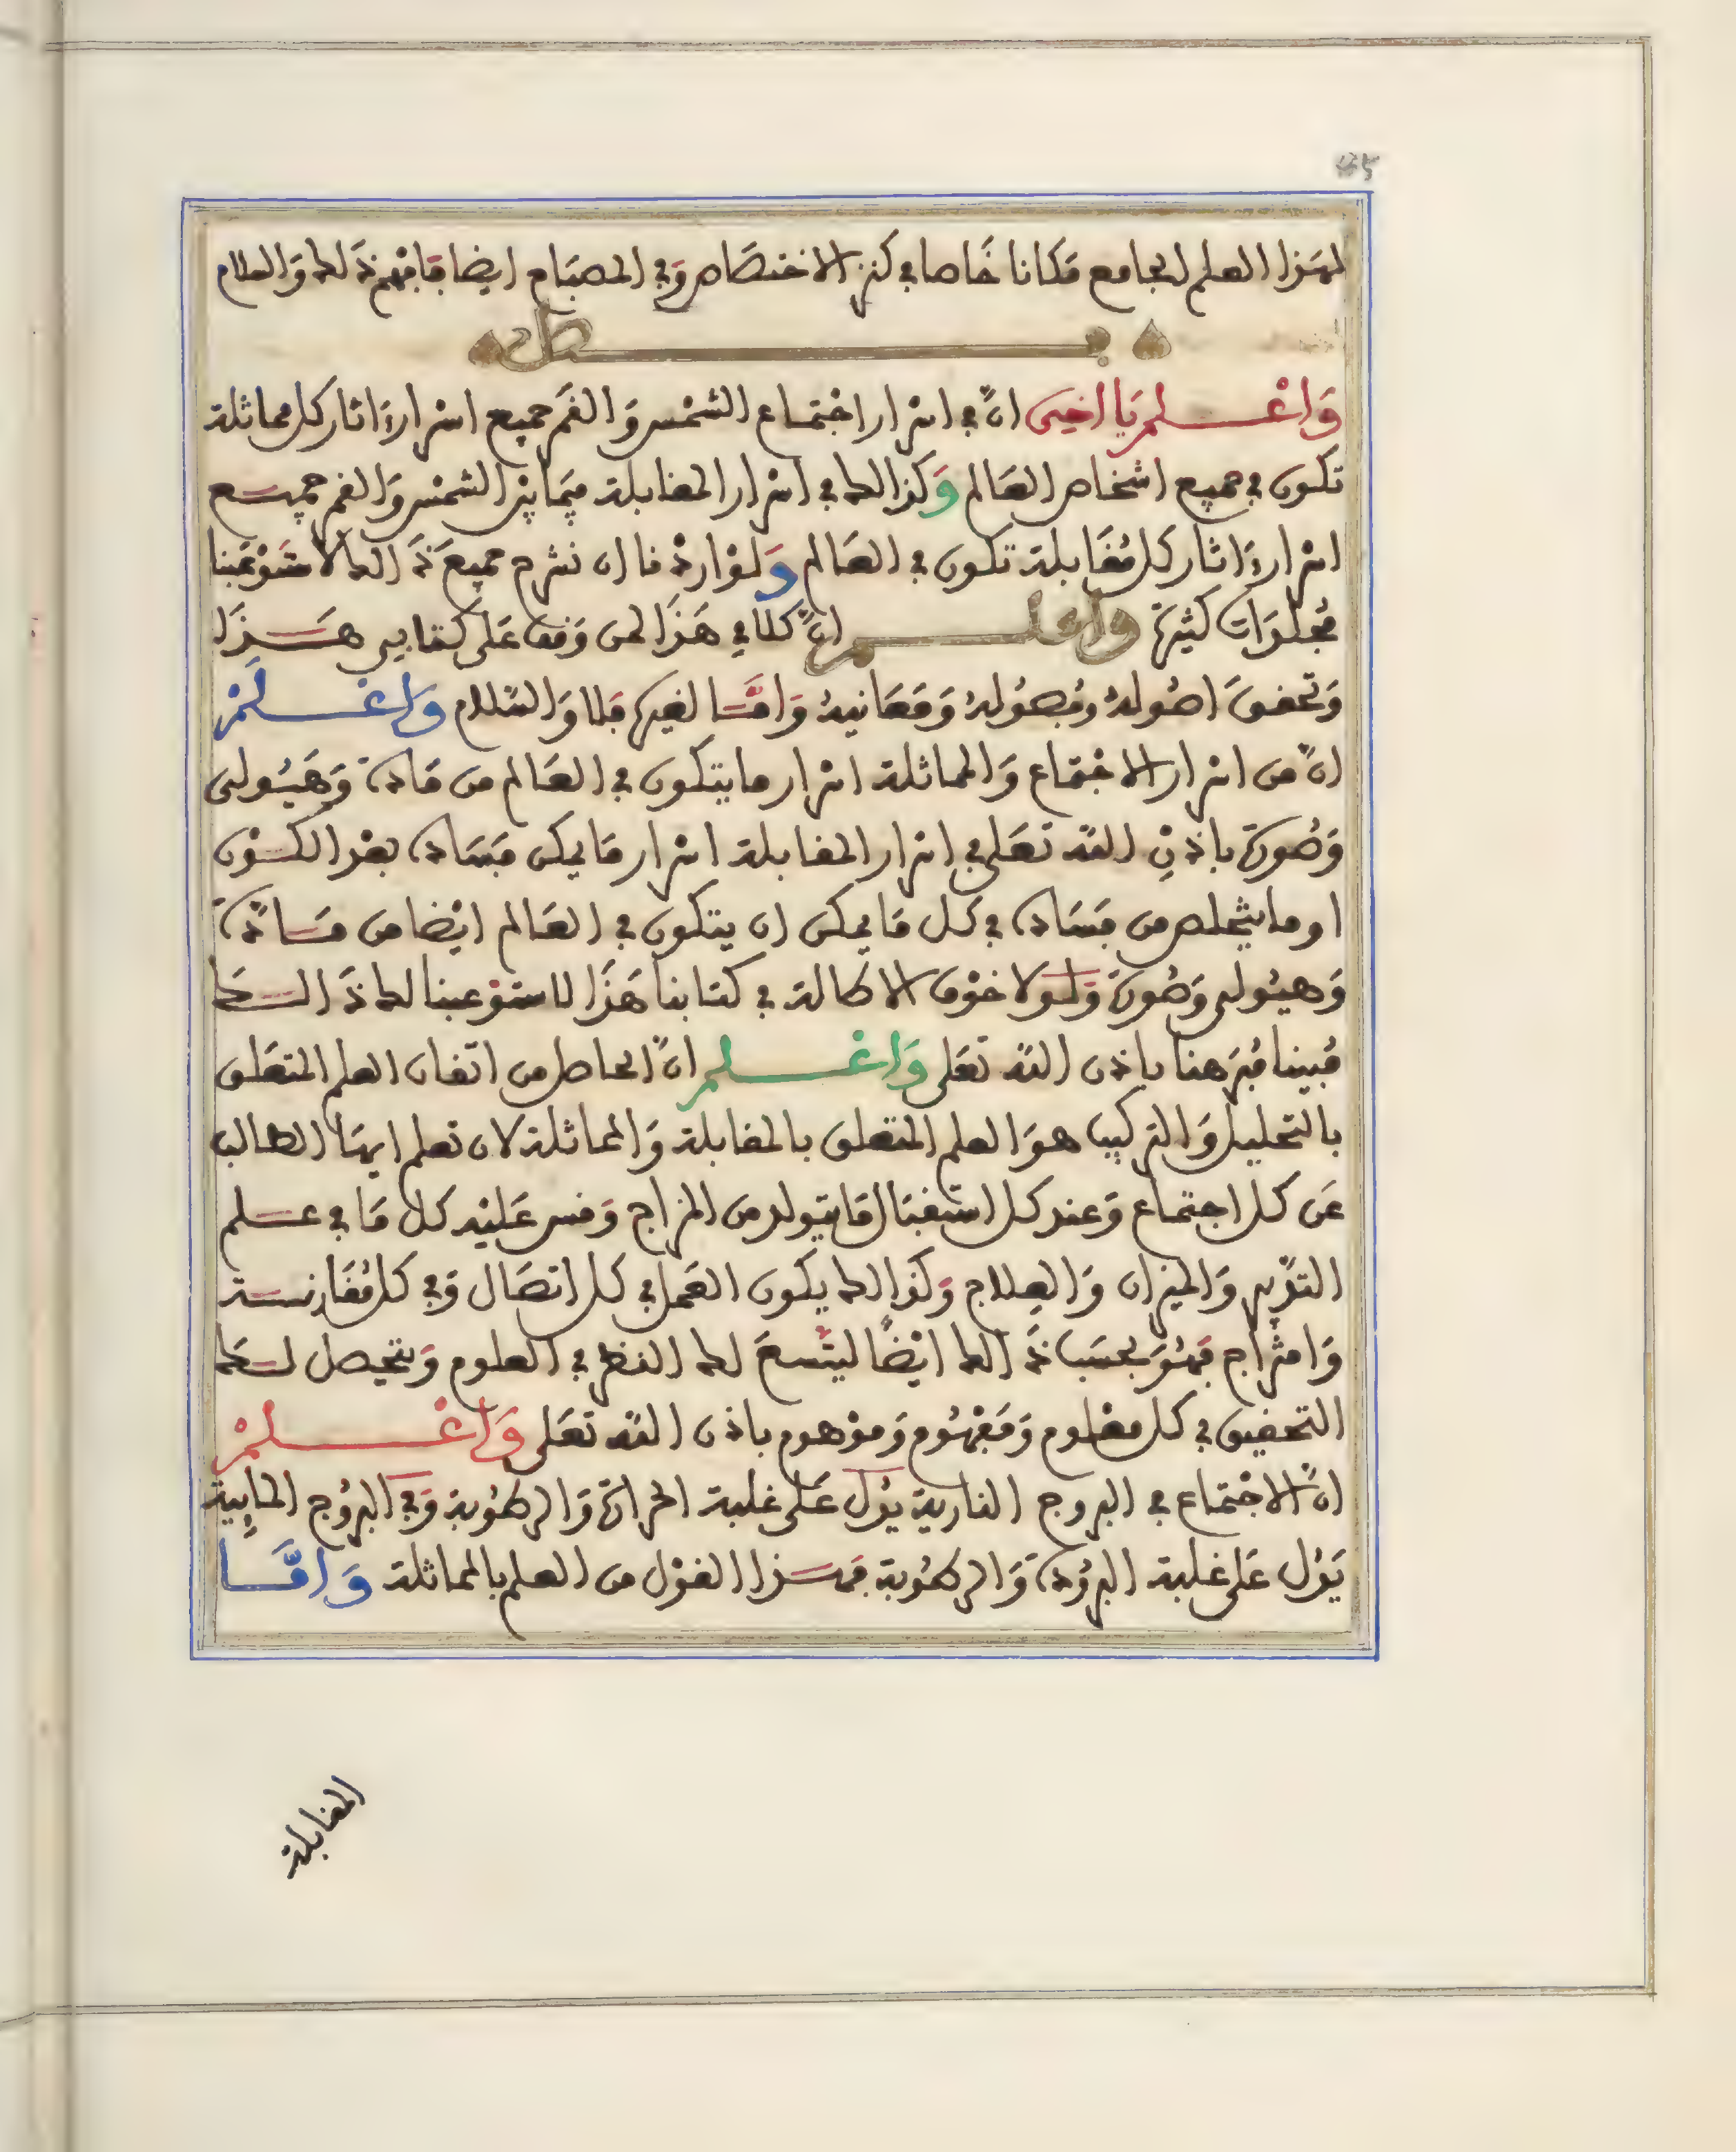 لهذا العلم الجامع مكانا خاصا في كنز الاختصاص وفي المصباح ايضا فافهم ذلك والسلام
فصل
واعلم يا اخي ان في اسرار اجتماع الشمس والقمر جميع اسرار ءاثار كل مماثلة
تكون في جميع اشخاص العالم وكذالك في اسرار المقابلة فيما بين الشمس والقمر جميع
اسرار ءاثار كل مقابلة تكون في العالم ولو اردنا ان نشرح جميع ذالك لاستوعبنا
مجلدات كثيرة واعلم ان كلامي هذا لمن وقف على كتابي هذا
وتحقق اصوله وفصوله ومعانيه واما لغيره فلا والسلام واعلم
ان من اسرار الاجتماع والمماثلة اسرار ما يتكون في العالم من مادة وهيولى
وصورة باذن الله تعلى في اسرار المقابلة اسرار ما يمكن فساده بعد الكون
او ما يتخلص من فساده في كل ما يمكن ان يتكون في العالم ايضا من مادة
وهيولى وصورة ولولا خوف الاطالة في كتابنا هذا لاستوعبنا لك ذالك
مبينا مبرهنا باذن الله تعلى واعلم ان الحاصل من اتقان العلم المتعلق
بالتحليل والتركيب هو العلم المتعلق بالمقابلة والمماثلة لان تعلم ايها الطالب
عن كل اجتماع وعند كل استقبال ما يتولد من المزاج وقس عليه كل ما في علم
التدبير والميزان والعلاج وكذالك يكون العمل في كل اتصال وفي كل مقارنة
وامتزاج فهو بحسب ذالك ايضا ليتسع لك النظر في العلوم ويتحصل لك
التحقيق في كل معلوم ومفهوم وموهوم باذن الله تعلى واعلم
ان الاجتماع في البروج النارية يدل على غلبة الحرارة والرطوبة وفي البروج المايية
يدل على غلبة البرودة والرطوبة فهذا القول من العلم بالمماثلة واما
المقابلة